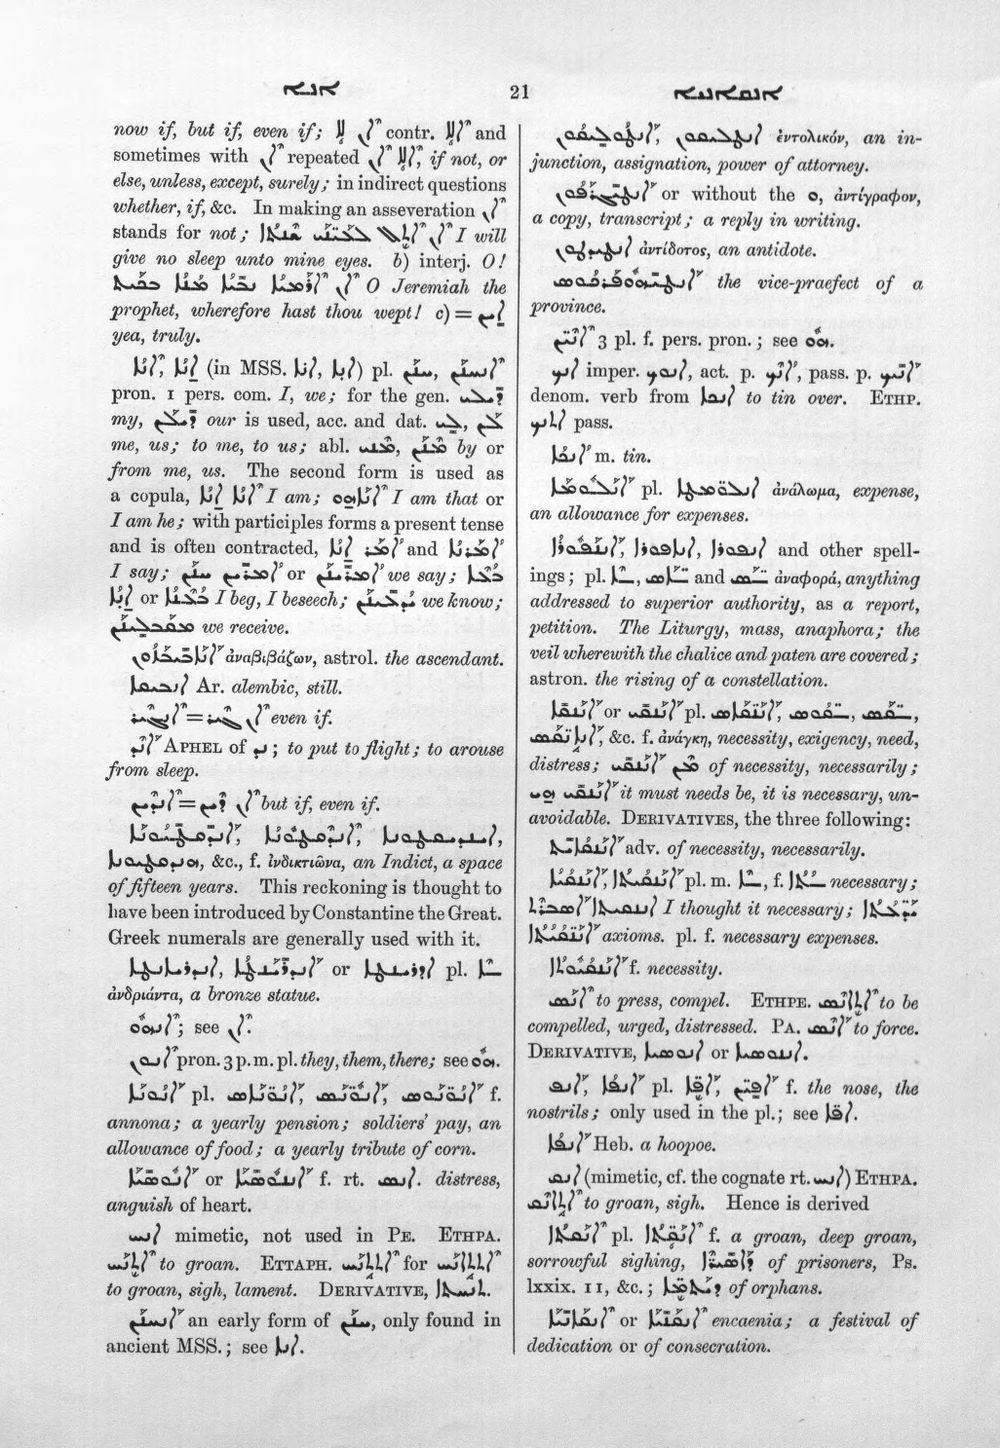 ܐܢܐ 21
now if, but if, even if; ܐܠܐ ܐܢ contr. ܐܠܐ and
sometimes with ܐܢ repeated ܐܢ ܐܠܐ, if not, or
else, unless, except, surely; in indirect questions
whether, if, &c. In making an asseveration ܐܢ
stands for not; ܐܢ ܐܬܠ ܠܥܝܢܝ ܫܢܬܐ I will
give no sleep unto mine eyes. b) interj. O!
ܐܢ ܐܪܡܝܐ ܢܒܝܐ ܡܢܐ ܒܟܝܬ O Jeremiah the
prophet, wherefore hast thou wept! c) = ܐܝܢ
yea, truly.
ܐܢܐ, ܐܢܐ (in MSS. ܐܢܐ, ܐܢܐ) pl. ܚܢܢ, ܐܢܚܢܢ
pron. 1 pers. com. I, we; for the gen. ܕܝܠܝ
my, ܕܝܠܢ our is used, acc. and dat. ܠܝ, ܠܢ
me, us; to me, to us; abl. ܡܢܝ, ܡܢܢ by or
from me, us. The second form is used as
a copula, ܐܢܐ ܐܢܐ I am; ܐܢܐܗܘ I am that or
I am he; with participles forms a present tense
and is often contracted, ܐܡܪ ܐܢܐ and ܐܡܪܢܐ
I say; ܐܡܪܝܢ ܚܢܢ or ܐܡܪܝܢܢ we say; ܒܥܐ
ܐܢܐ or ܒܥܢܐ I beg, I beseech; ܝܕܥܝܢܢ we know;
ܡܩܒܠܝܢܢ we receive.
ἀναβιβάζων, astrol. the ascendant.
ܐܢܒܝܩܐ Ar. alembic, still.
= ܐܢ even if.
ܐܢܕ APHEL of ܢܕ; to put to flight; to arouse
from sleep.
ܐܢܕܝܢ = ܐܢ ܕܝܢ but if, even if.
&c., f. ἰνδικτιῶνα, an Indict, a space
of fifteen years. This reckoning is thought to
have been introduced by Constantine the Great.
Greek numerals are generally used with it.
or pl.
ἀνδριάντα, a bronze statue.
ܐܢܗܘ; see ܐܢ.
ܐܢܘܢ pron. 3 p. m. pl. they, them, there; see ܗܘ.
ܐܢܘܢܐ pl. f.
annona; a yearly pension; soldiers' pay, an
allowance of food; a yearly tribute of corn.
or f. rt. ܐܢܣ. distress,
anguish of heart.
ܐܢܚ mimetic, not used in PE. ETHPA.
ܐܬܐܢܚ to groan. ETTAPH. ܐܬܬܢܚ for ܐܬܬܐܢܚ
to groan, sigh, lament. DERIVATIVE, ܐܢܚܬܐ.
ܐܢܚܢܢ an early form of ܚܢܢ, only found in
ancient MSS.; see ܐܢܐ.
ἐντολικόν, an in-
junction, assignation, power of attorney.
or without the ܘ, ἀντίγραφον,
a copy, transcript; a reply in writing.
ἀντίδοτος, an antidote.
the vice-praefect of a
province.
ܐܢܝܢ 3 pl. f. pers. pron.; see ܗܘ.
ܐܢܟ imper. ܐܢܘܟ, act. p. ܐܢܟ, pass. p. ܐܢܝܟ
denom. verb from ܐܢܟܐ to tin over. ETHP.
pass.
ܐܢܟܐ m. tin.
pl. ἀνάλωμα, expense,
an allowance for expenses.
ܐܢܦܘܪܐ and other spell-
ings; pl. and ἀναφορά, anything
addressed to superior authority, as a report,
petition. The Liturgy, mass, anaphora; the
veil wherewith the chalice and paten are covered;
astron. the rising of a constellation.
ܐܢܢܩܐ or ܐܢܢܩܝ pl.
&c. f. ἀνάγκη, necessity, exigency, need,
distress; ܡܢ ܐܢܢܩܝ of necessity, necessarily;
ܐܢܢܩܝ ܗܝ it must needs be, it is necessary, un-
avoidable. DERIVATIVES, the three following:
ܐܢܢܩܐܝܬ adv. of necessity, necessarily.
ܐܢܢܩܝܐ, ܐܢܢܩܝܬܐ pl. m. f. necessary;
I thought it necessary;
axioms. pl. f. necessary expenses.
ܐܢܢܩܝܘܬܐ f. necessity.
ܐܢܣ to press, compel. ETHPE. ܐܬܐܢܣ to be
compelled, urged, distressed. PA. ܐܢܣ to force.
DERIVATIVE, or
ܐܢܦ, ܐܢܦܐ pl. ܐܦܐ, ܐܦܝܢ f. the nose, the
nostrils; only used in the pl.; see ܐܦܐ.
ܐܢܦܐ Heb. a hoopoe.
ܐܢܩ (mimetic, cf. the cognate rt. ܐܢܚ) ETHPA.
ܐܬܐܢܩ to groan, sigh. Hence is derived
ܐܢܩܬܐ pl. ܐܢܩܬܐ f. a groan, deep groan,
sorrowful sighing, ܕܐܣܝܪܐ of prisoners, Ps.
lxxix. 11, &c.; ܕܝܬܡܐ of orphans.
or encaenia; a festival of
dedication or of consecration.